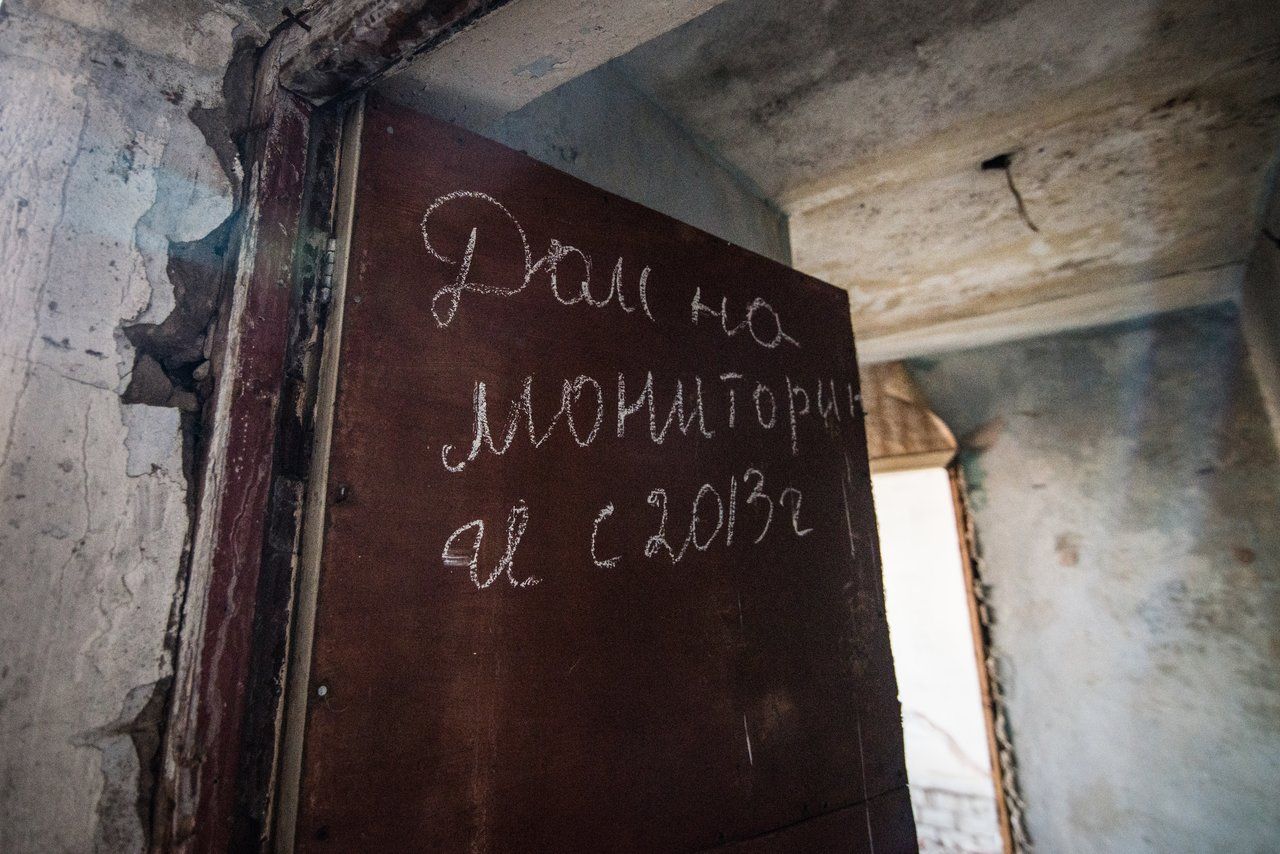 Дом на
мониторин
ге с 2013г